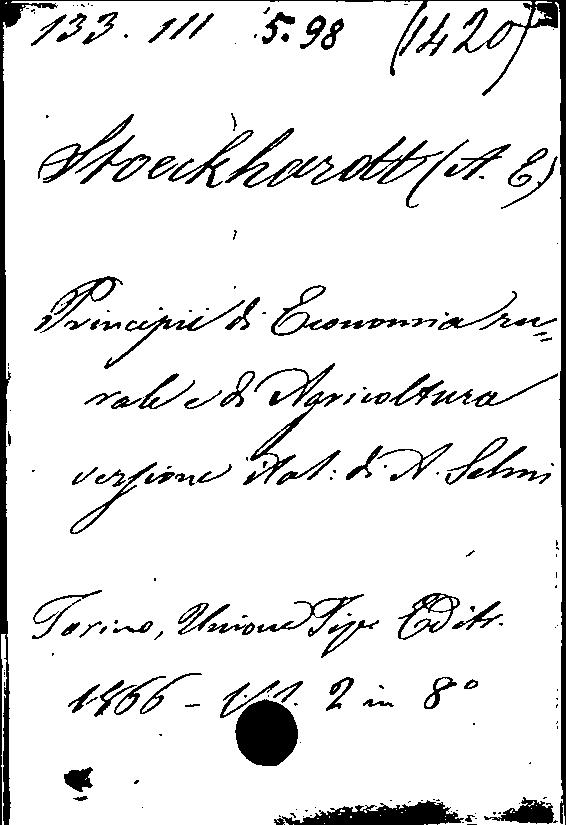 133. III 5.98 (1420)
Stoeckhardt (A. E.)
Principii di Economia ru=
rale e di Agricoltura
versione ital: di A. Selmi
Torino, Unione Tipe Editr.
1866 - Vol. 2 in 8°